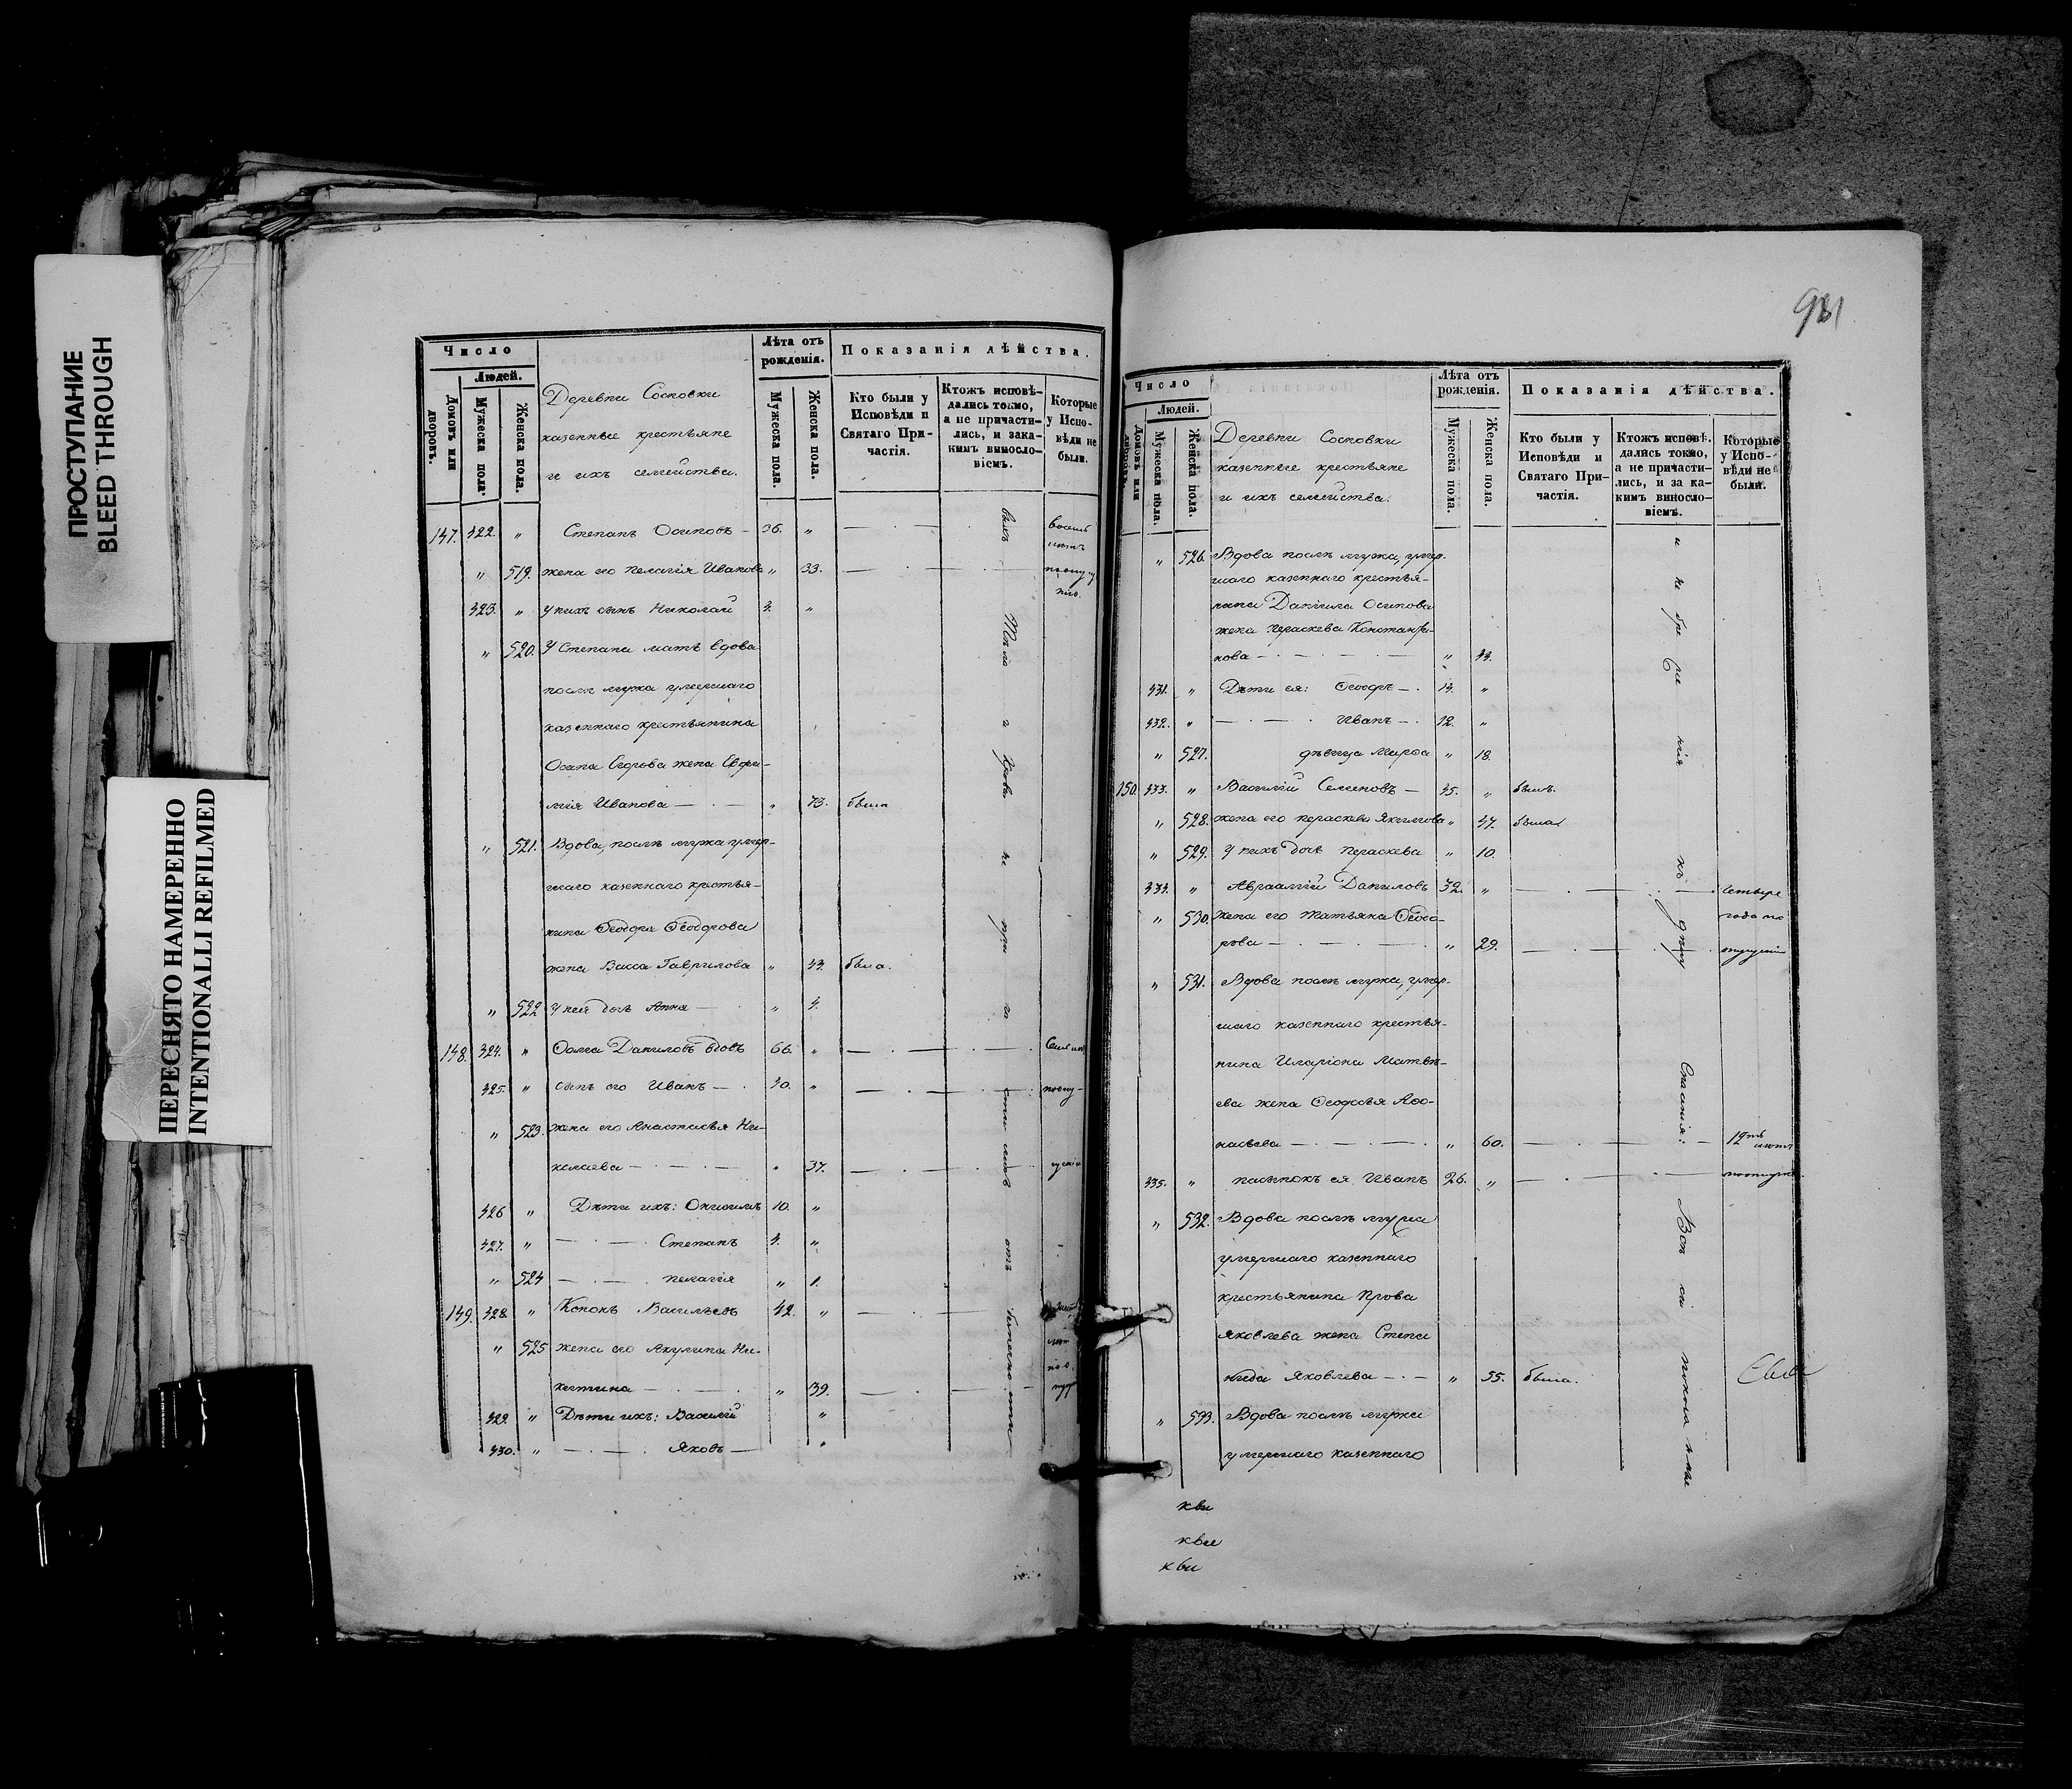 ПРОСТУПАНИЕ
BLEED THROUGH
ПЕРЕСНЯТО НАМЕРЕННО
INTENTIONALLI REFILMED
Число
Людей.
Домовъ или дворовъ.
Мужеска пола.
Женска пола.
Деревни Сосновки
казенные крестьяне
и ихъ семейства.
Лѣта отъ рожденія.
Мужеска пола.
Женска пола.
Показанія дѣйства.
Кто были у Исповѣди и Святаго Причастія.
Ктожъ исповѣдались токмо, а не причастились, и за какимъ винословіемъ.
Которые у Исповѣди не были.
147. 422. " Степанъ Осиповъ — 36. "
" 519. жена его Пелагія Иванова " 33.
423. " У нихъ сынъ Николай 4. "
" 520. У Степана мать вдова
послѣ мужа умершаго
казеннаго крестьянина
Осипа Егорова жена Евфи-
мія Иванова — " 73. была
" 521. Вдова, послѣ мужа умер-
шаго казеннаго крестья-
нина Ѳеодора Ѳеодорова
жена Васса Гаврилова " 43. была.
" 522 У ней дочь Анна — " 4.
148. 424. " Ѳома Даниловъ вдовъ 66. "
425. " сынъ его Иванъ — 40. "
" 523. жена его Анастасья Ни-
колаева — " 37.
426 " Дѣти ихъ: 10. "
427. " — Степанъ 4. "
" 524 — Пелагія " 1.
149. 428. " Кононъ Васильевъ 42. "
" 525 жена его Акулина Ни-
китина — " 39.
429. " Дѣти ихъ: Василій "
430. " — Яковъ — "
931
Число
Людей.
Домовъ или дворовъ.
Мужеска пола.
Женска пола.
Деревни Сосновки
казенные крестьяне
и ихъ семейства.
Лѣта отъ рожденія.
Мужеска пола.
Женска пола.
Показанія дѣйства.
Кто были у Исповѣди и Святаго Причастія.
Ктожъ исповѣдались токмо, а не причастились, и за какимъ винословіемъ.
Которые у Исповѣди не были.
" 526. Вдова послѣ мужа, умер-
шаго казеннаго крестья-
нина Даніила Осипова
жена Параскева Константи-
нова — " 44.
431. " Дѣти ея: Ѳеодоръ — 14. "
432. " — Иванъ — 12. "
" 527. дѣвица Марѳа " 18.
150. 433. " Василій Семеновъ — 45. " былъ.
" 528. жена его Параскева Якимова " 47. была.
" 529. У нихъ дочь Параскева " 10.
434. " Авраамій Даниловъ 32. " — четыре
" 530. жена его Татьяна Ѳеодо- года по
рова — " 29. — опущенію
" 531. Вдова послѣ мужа, умер-
шаго казеннаго крестья-
нина Иларіона Матвѣ-
ева жена Ѳеодосья Аѳо-
насьева — " 60.
435. " пасынокъ ея Иванъ 26. "
" 532. Вдова послѣ мужа
умершаго казеннаго
крестьянина Прова
Яковлева жена Степа
нида Яковлева — " 55. была.
" 533. Вдова послѣ мужа
умершаго казеннаго